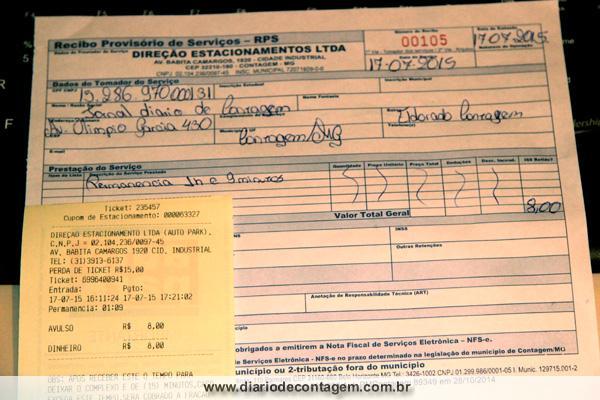 Recibo Provisório de Serviços – RPS
DIREÇÃO ESTACIONAMENTOS LTDA
AV. BABITA CAMARGOS, 1820 - CIDADE INDUSTRIAL
CEP 32210-180 - CONTAGEM/MG
CNPJ 02.104.236/0097-45
Número do Recibo
00105
Data da Emissão
17.07.2015
17.07.2015
Dados do Tomador do Serviço
CPF CNPJ
Inscrição Estadual
Inscrição Municipal
Nome Fantasia
Jornal diario de Contagem
Av. Olimpio Garcia 430
Contagem/MG
Eldorado Contagem
E-mail
Prestação do Serviço
Item da Lista
Quantidade
Preço Unitário
Preço Total
Deduções
Desc. Incond.
ISS Retido?
Permanencia 1h e 9 minutos
Valor Total Geral
8,00
INSS
Outras Retenções
Anotação de Responsabilidade Técnica (ART)
obrigados a emitirem a Nota Fiscal de Serviços Eletrônica – NFS-e.
de Serviços Eletrônica - NFS-e no prazo determinado na legislação do município de Contagem/MG
município ou 2-tributação fora do município
Ticket: 235457
Cupom de Estacionamento: 000063327
DIREÇÃO ESTACIONAMENTO LTDA (AUTO PARK),
C.N.P.J = 02.104.236/0097-45
AV. BABITA CAMARGOS 1920 CID. INDUSTRIAL
TEL: (31)3913-6137
PERDA DE TICKET R$15,00
Ticket: 6996400941
Entrada: Pgto:
17-07-15 16:11:24 17-07-15 17:21:02
Permanencia: 01:09
AVULSO R$ 8,00
DINHEIRO R$ 8,00
OBS: APOS RECEBER ESTE O TEMPO PARA
DEIXAR O COMPLEXO E DE (15) MINUTOS,
www.diariodecontagem.com.br